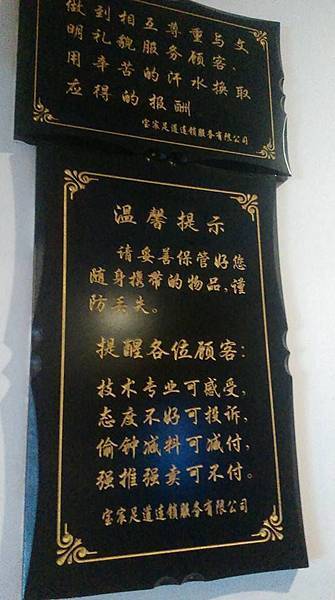 做到相互尊重与文
明礼貌服务顾客、
用辛苦的汗水换取
应得的报酬
宝宸足道连锁服务有限公司
温馨提示
请妥善保管好您
随身携带的物品,谨
防丢失。
提醒各位顾客:
技术专业可感受,
态度不好可投诉,
偷钟减料可减付,
强推强卖可不付。
宝宸足道连锁服务有限公司